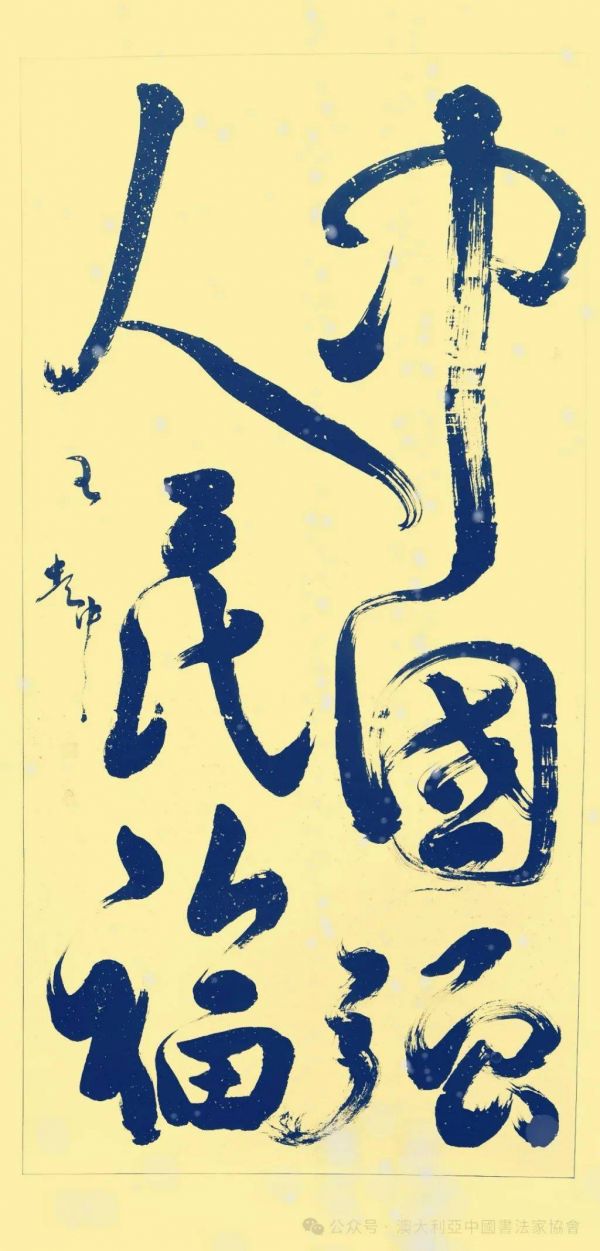 中國强
人民福
公众号·澳大利亞中國書法家協會